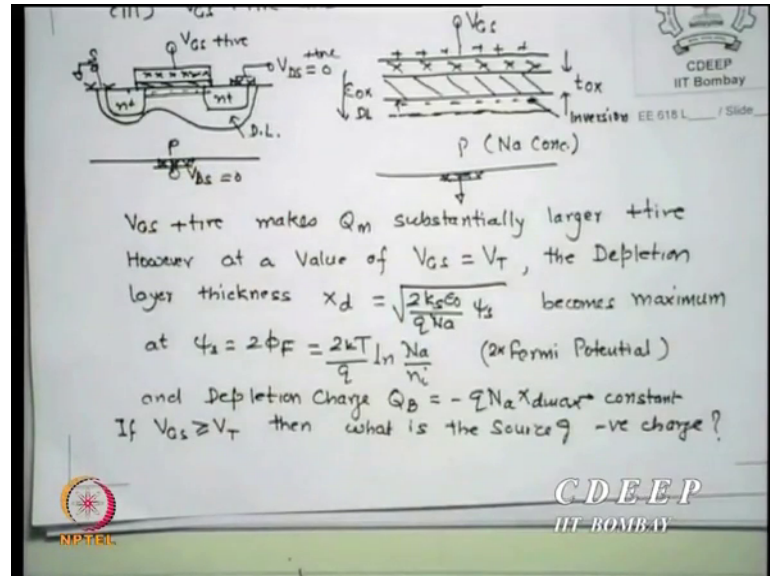 (iii) VGS +tive
VGS +tive
VDS = 0
+tive
S
n+
n+
D.L.
P
VBS = 0
VGS
+ + + + + +
x x x x x x
εox
DL
tox
Inversion
P (Na Conc.)
CDEEP
IIT Bombay
EE 618 L____ / Slide__
VGS +tive makes Qm substantially larger +tive
However at a Value of VGS = VT, the Depletion
layer thickness xd = √(2ksε0/qNa ψs) becomes maximum
at ψs = 2ΦF = 2kT/q ln Na/ni (2x Fermi Potential)
and Depletion Charge QB = - qNa xdmax → constant
If VGS ≥ VT then what is the Source of -ve charge?
NPTEL
CDEEP
IIT BOMBAY